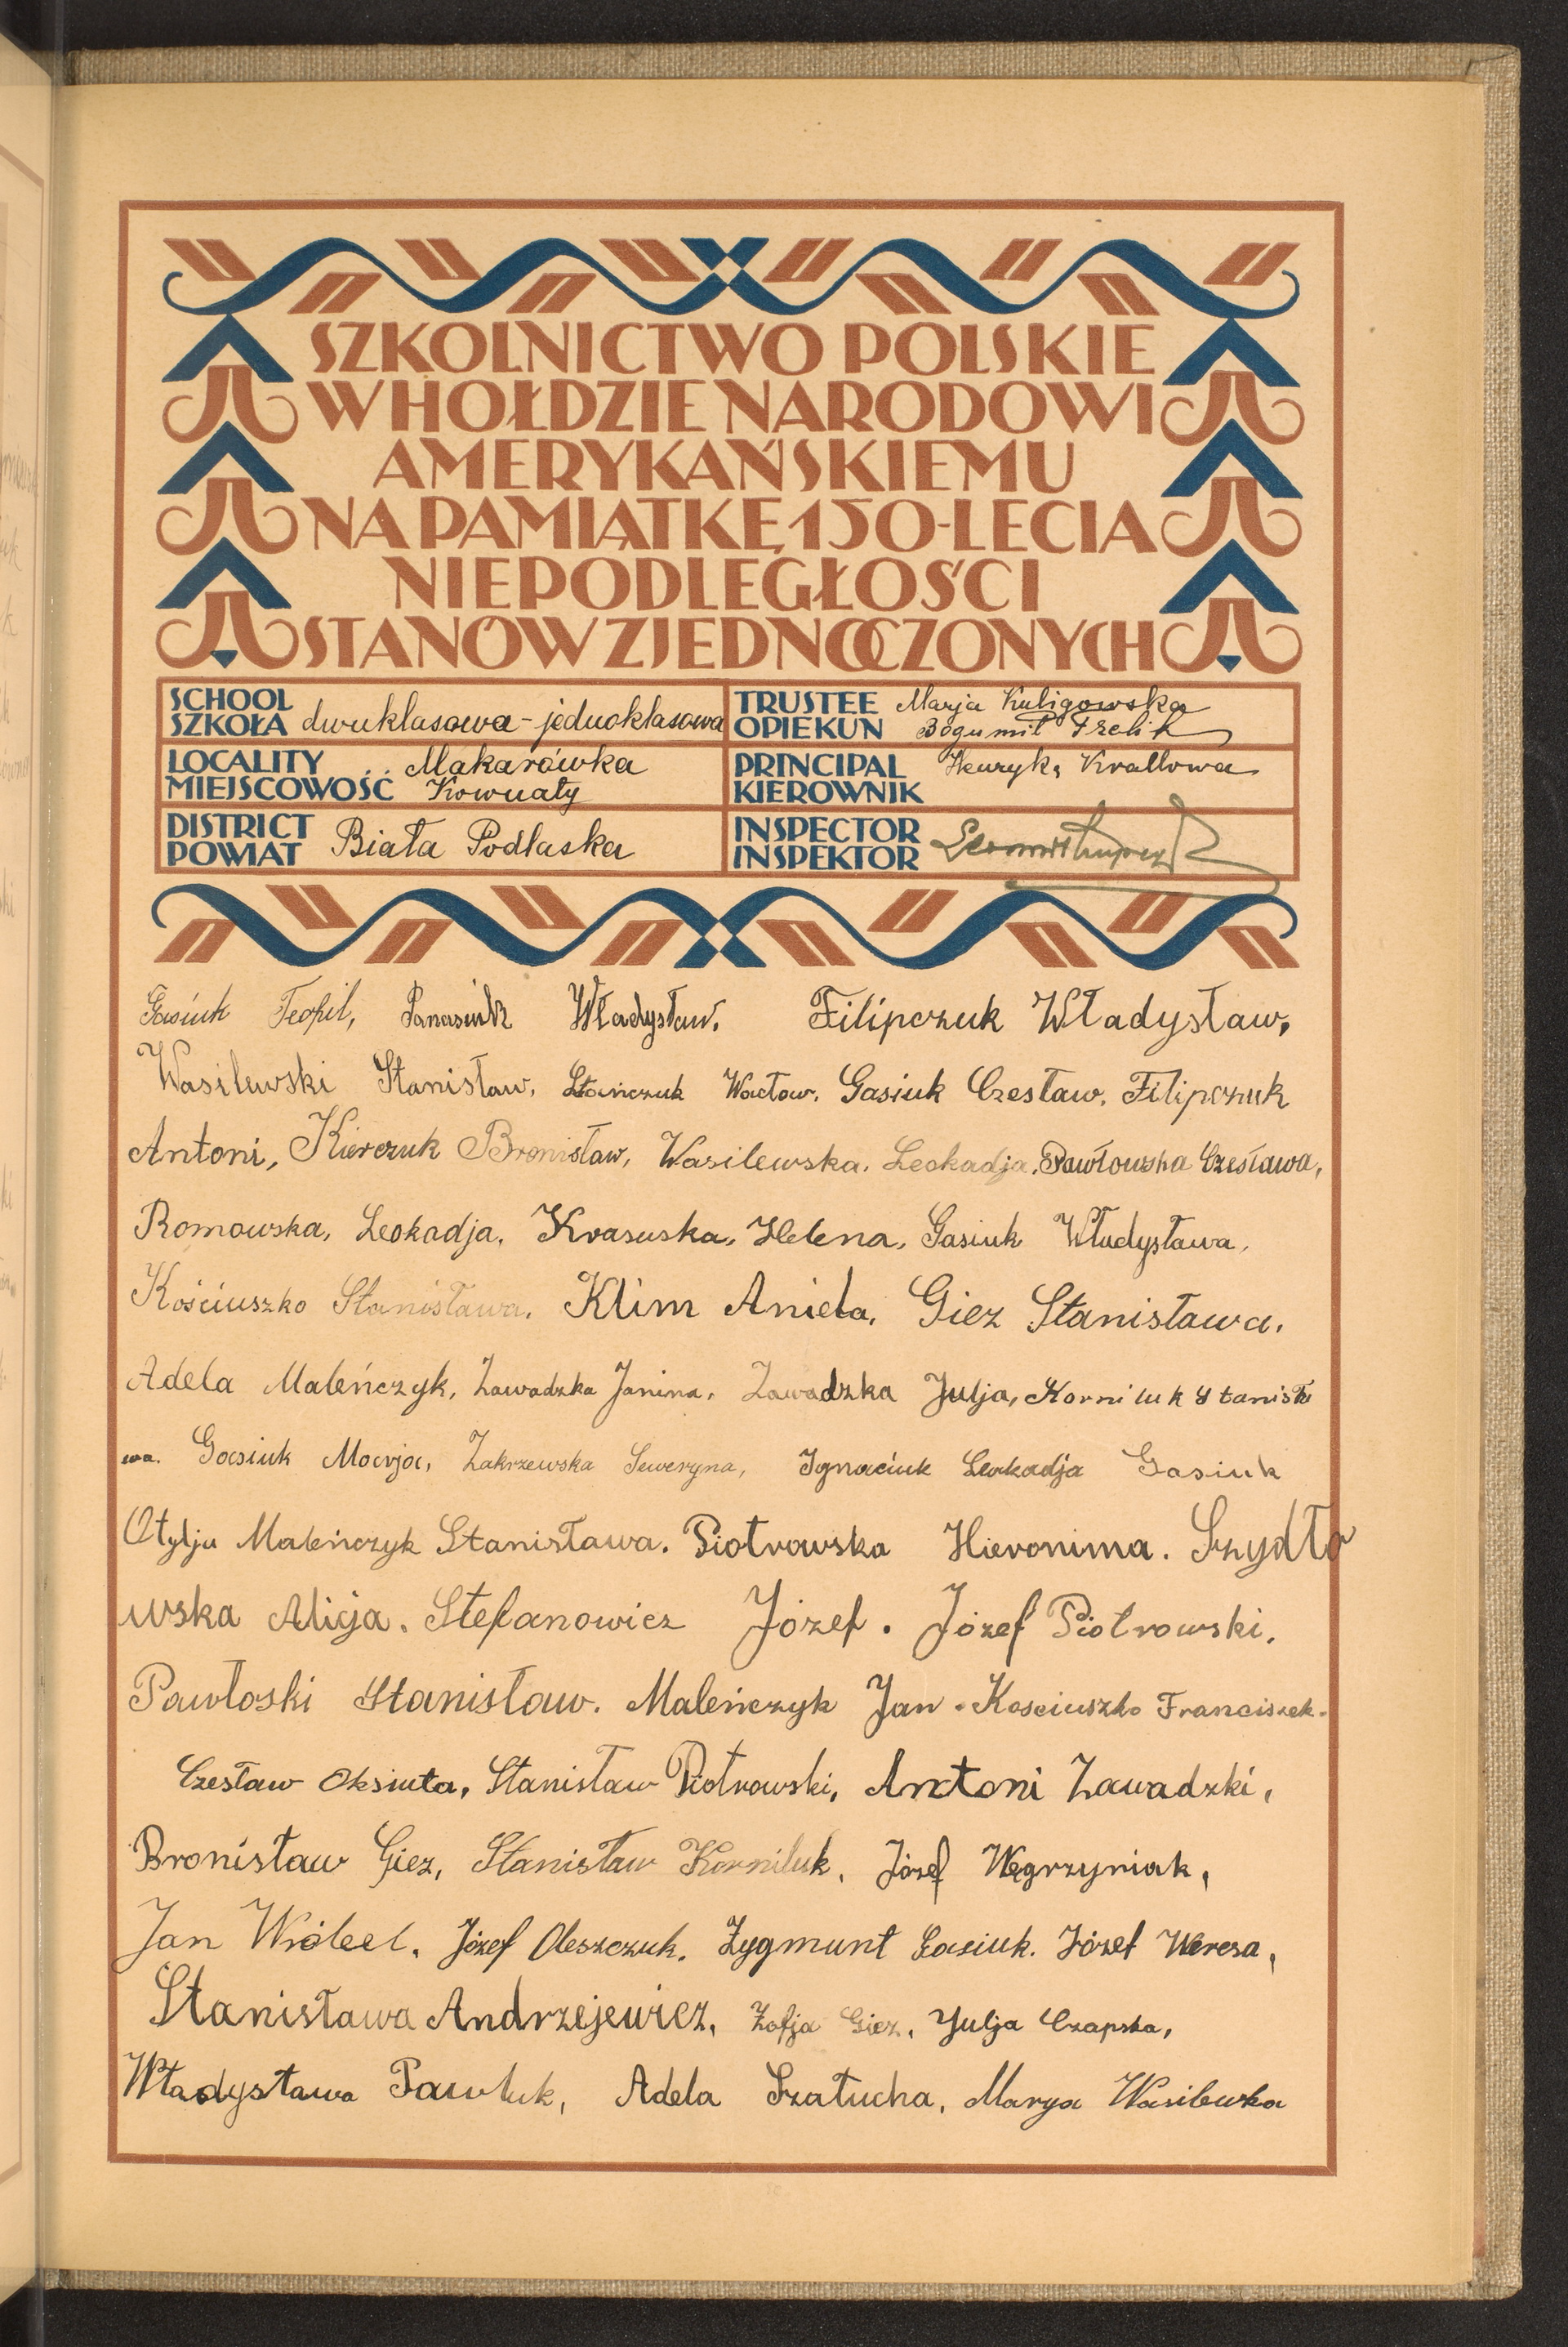 SZKOLNICTWO POLSKIE
W HOŁDZIE NARODOWI
AMERYKAŃSKIEMU
NA PAMIĄTKĘ 150-LECIA
NIEPODLEGŁOŚCI
STANÓW ZJEDNOCZONYCH
SCHOOL
SZKOŁA dwuklasowa - jednoklasowa
TRUSTEE Marja Kuligowska
OPIEKUN Bogumił
LOCALITY Makarówka
MIEJSCOWOŚĆ Kownaty
PRINCIPAL Henryka Krallowa
KIEROWNIK
DISTRICT
POWIAT Biała Podlaska
INSPECTOR
INSPEKTOR
Gasiuk Teofil, Panasiuk Władysław. Filipczuk Władysław,
Wasilewski Stanisław, Stańczuk Wacław. Gasiuk Czesław. Filipczuk
Antoni, Kierczuk Bronisław, Wasilewska. Leokadja. Pawłowska Czesława,
Romowska, Leokadja. Krasuska, Helena, Gasiuk Władysława,
Kościuszko Stanisława. Klim Aniela. Giez Stanisława.
Adela Maleńczyk, Zawadzka Janina. Zawadzka Julja, Korniluk Stanisła
wa. Gasiuk Marja, Zakrzewska Seweryna, Ignaciuk Leokadja Gasiuk
Otylja Maleńczyk Stanisława. Piotrowska Hieronima. Szydło
wska Alicja. Stefanowicz Józef. Józef Piotrowski.
Pawłoski Stanisław. Maleńczyk Jan. Kosciuszko Franciszek.
Czesław Oksiuta, Stanisław Piotrowski, Antoni Zawadzki,
Bronisław Giez, Stanisław Korniluk, Józef Węgrzyniak,
Jan Wróbel, Józef Oleszczuk. Zygmunt Gasiuk. Józef Weresa,
Stanisława Andrzejewicz, Zofja Giez, Julja Czapska,
Władysława Pawluk, Adela Szałucha, Marya Wasilewska